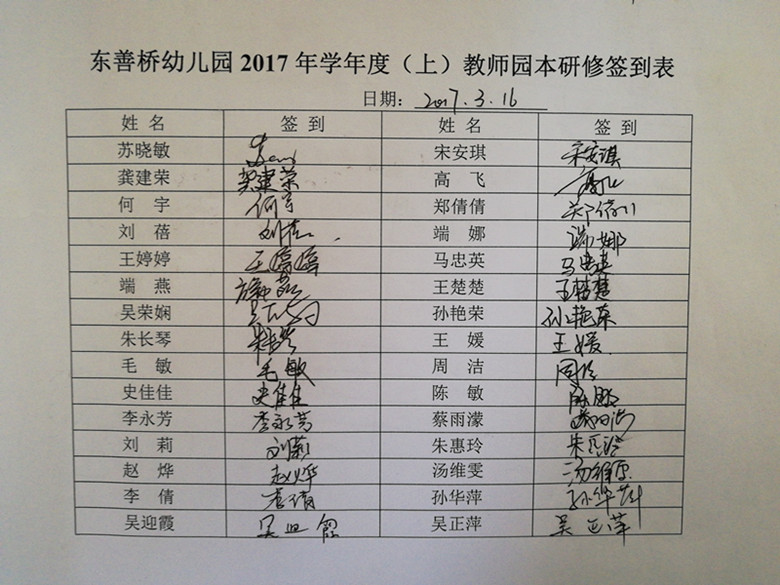 东善桥幼儿园 2017 年学年度（上）教师园本研修签到表
日期：2017.3.16
姓 名 签 到 姓 名 签 到
苏晓敏 宋安琪 宋安琪
龚建荣 龚建荣 高 飞 高飞
何 宇 何宇 郑倩倩 郑倩
刘 蓓 刘蓓 端 娜 端娜
王婷婷 王婷婷 马忠英 马忠英
端 燕 端燕 王楚楚 王楚楚
吴荣娴 孙艳荣 孙艳荣
朱长琴 朱长琴 王 媛 王媛
毛 敏 毛敏 周 洁 周洁
史佳佳 史佳佳 陈 敏 陈敏
李永芳 李永芳 蔡雨濛 蔡雨濛
刘 莉 刘莉 朱惠玲 朱惠玲
赵 烨 赵烨 汤维雯 汤维雯
李 倩 李倩 孙华萍 孙华萍
吴迎霞 吴迎霞 吴正萍 吴正萍